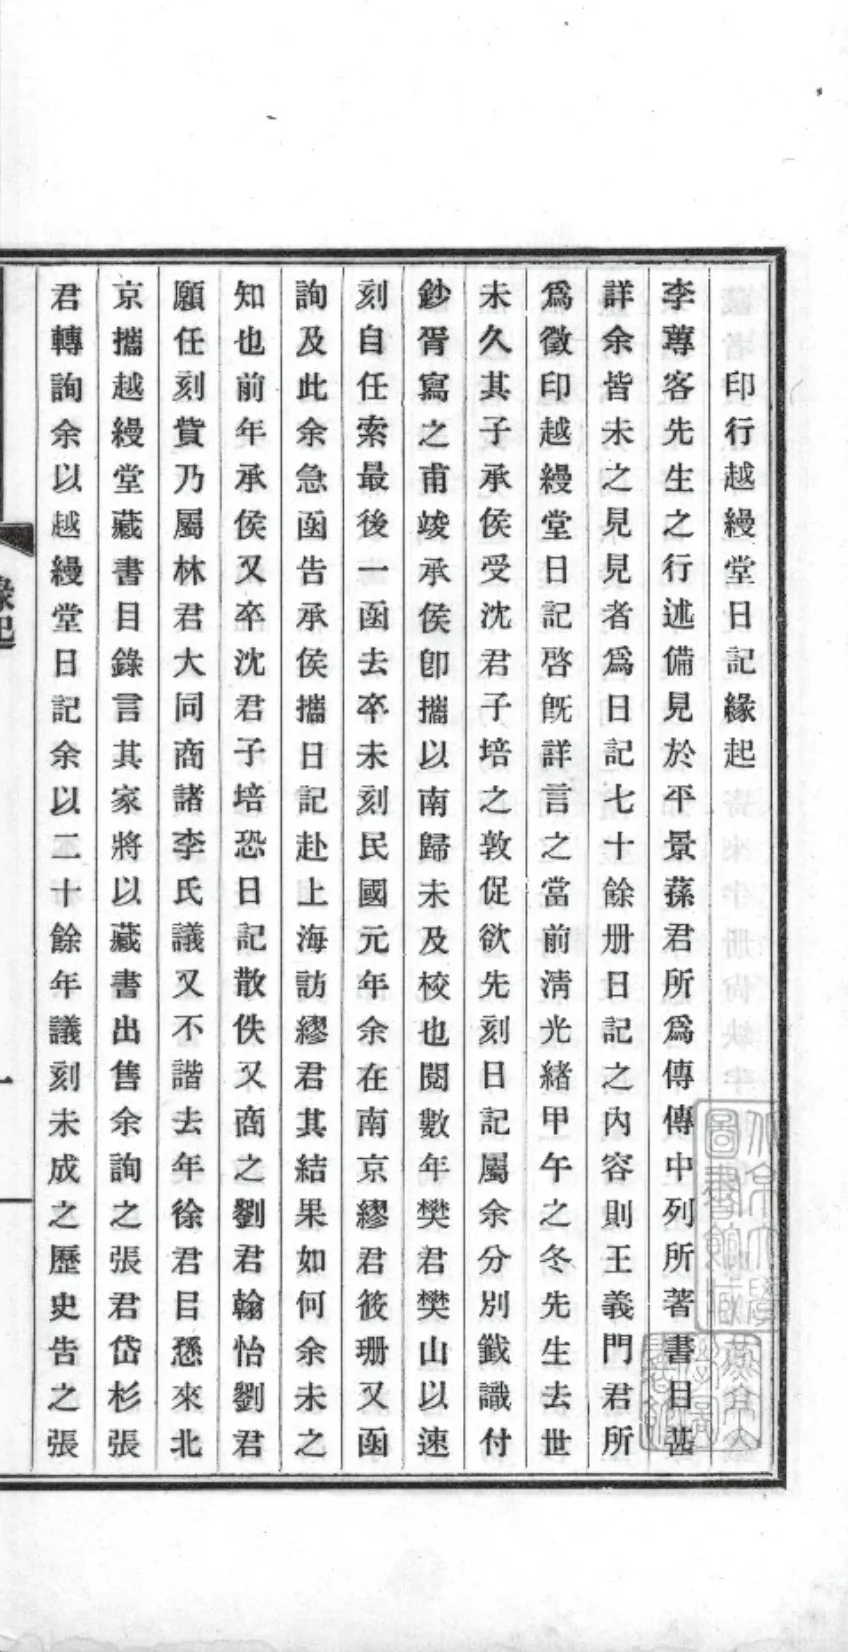 印行越縵堂日記緣起
李蓴客先生之行述備見於平景蓀君所爲傳傳中列所著書目甚
詳余皆未之見見者爲日記七十餘册日記之內容則王義門君所
爲徵印越縵堂日記啓旣詳言之當前淸光緖甲午之冬先生去世
未久其子承侯受沈君子培之敦促欲先刻日記屬余分別籤識付
鈔胥寫之甫竣承侯卽攜以南歸未及校也閱數年樊君樊山以速
刻自任索最後一函去卒未刻民國元年余在南京繆君筱珊又函
詢及此余急函告承侯攜日記赴上海訪繆君其結果如何余未之
知也前年承侯又卒沈君子培恐日記散佚又商之劉君翰怡劉君
願任刻貲乃屬林君大同商諸李氏議又不諧去年徐君㠯愻來北
京攜越縵堂藏書目錄言其家將以藏書出售余詢之張君岱杉張
君轉詢余以越縵堂日記余以二十餘年議刻未成之歷史告之張
緣起
一